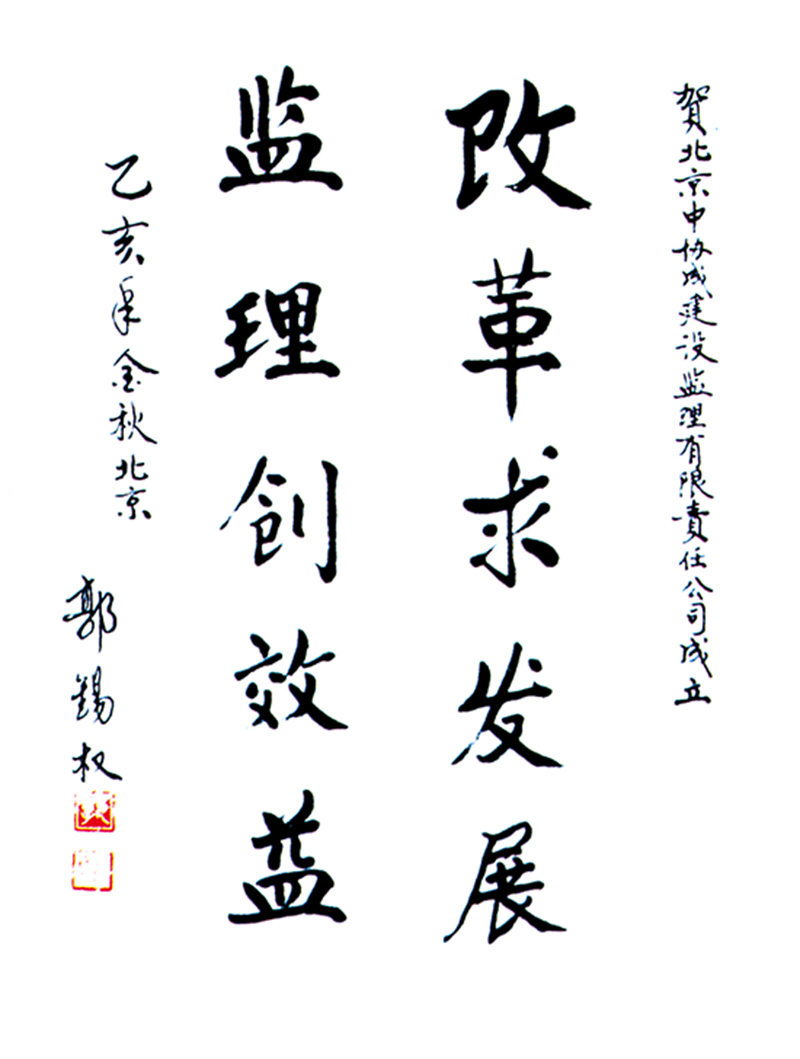 贺北京中协成建设监理有限责任公司成立
改革求发展
监理创效益
乙亥年金秋北京
郭锡权